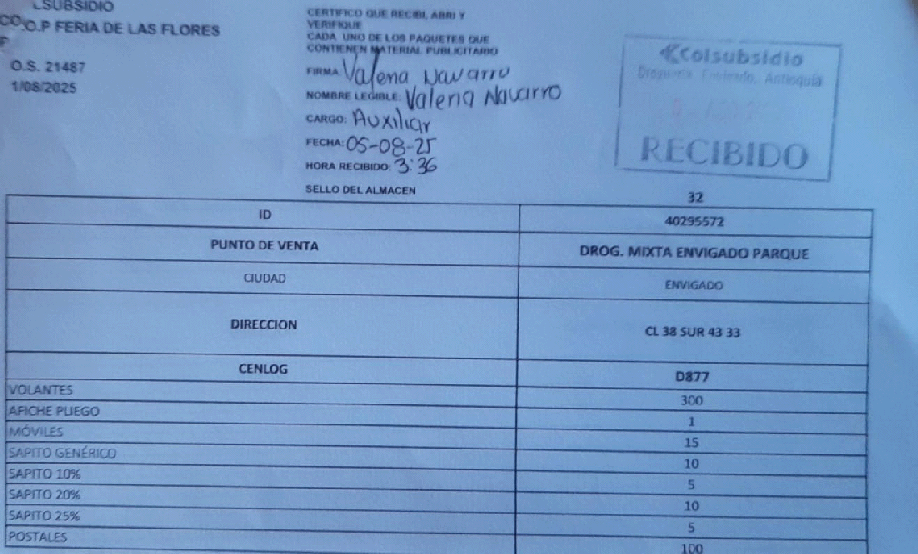 LSUBSIDIO
C.P FERIA DE LAS FLORES
O.S. 21487
1/08/2025
CERTIFICO QUE RECIBI, ABRI Y
VERIFIQUE
CADA UNO DE LOS PAQUETES QUE
CONTIENEN MATERIAL PUBLICITARIO
FIRMA: Valeria Navarro
NOMBRE LEGIBLE: Valeria Navarro
CARGO: Auxiliar
FECHA: 05-08-25
HORA RECIBIDO: 3:36
SELLO DEL ALMACEN
Colsubsidio
Envigado, Antioquia
RECIBIDO
32
ID 40295572
PUNTO DE VENTA DROG. MIXTA ENVIGADO PARQUE
CIUDAD ENVIGADO
DIRECCION CL 38 SUR 43 33
CENLOG D877
VOLANTES 300
AFICHE PLIEGO 1
MÓVILES 15
SAPITO GENÉRICO 10
SAPITO 10% 5
SAPITO 20% 10
SAPITO 25% 5
POSTALES 100